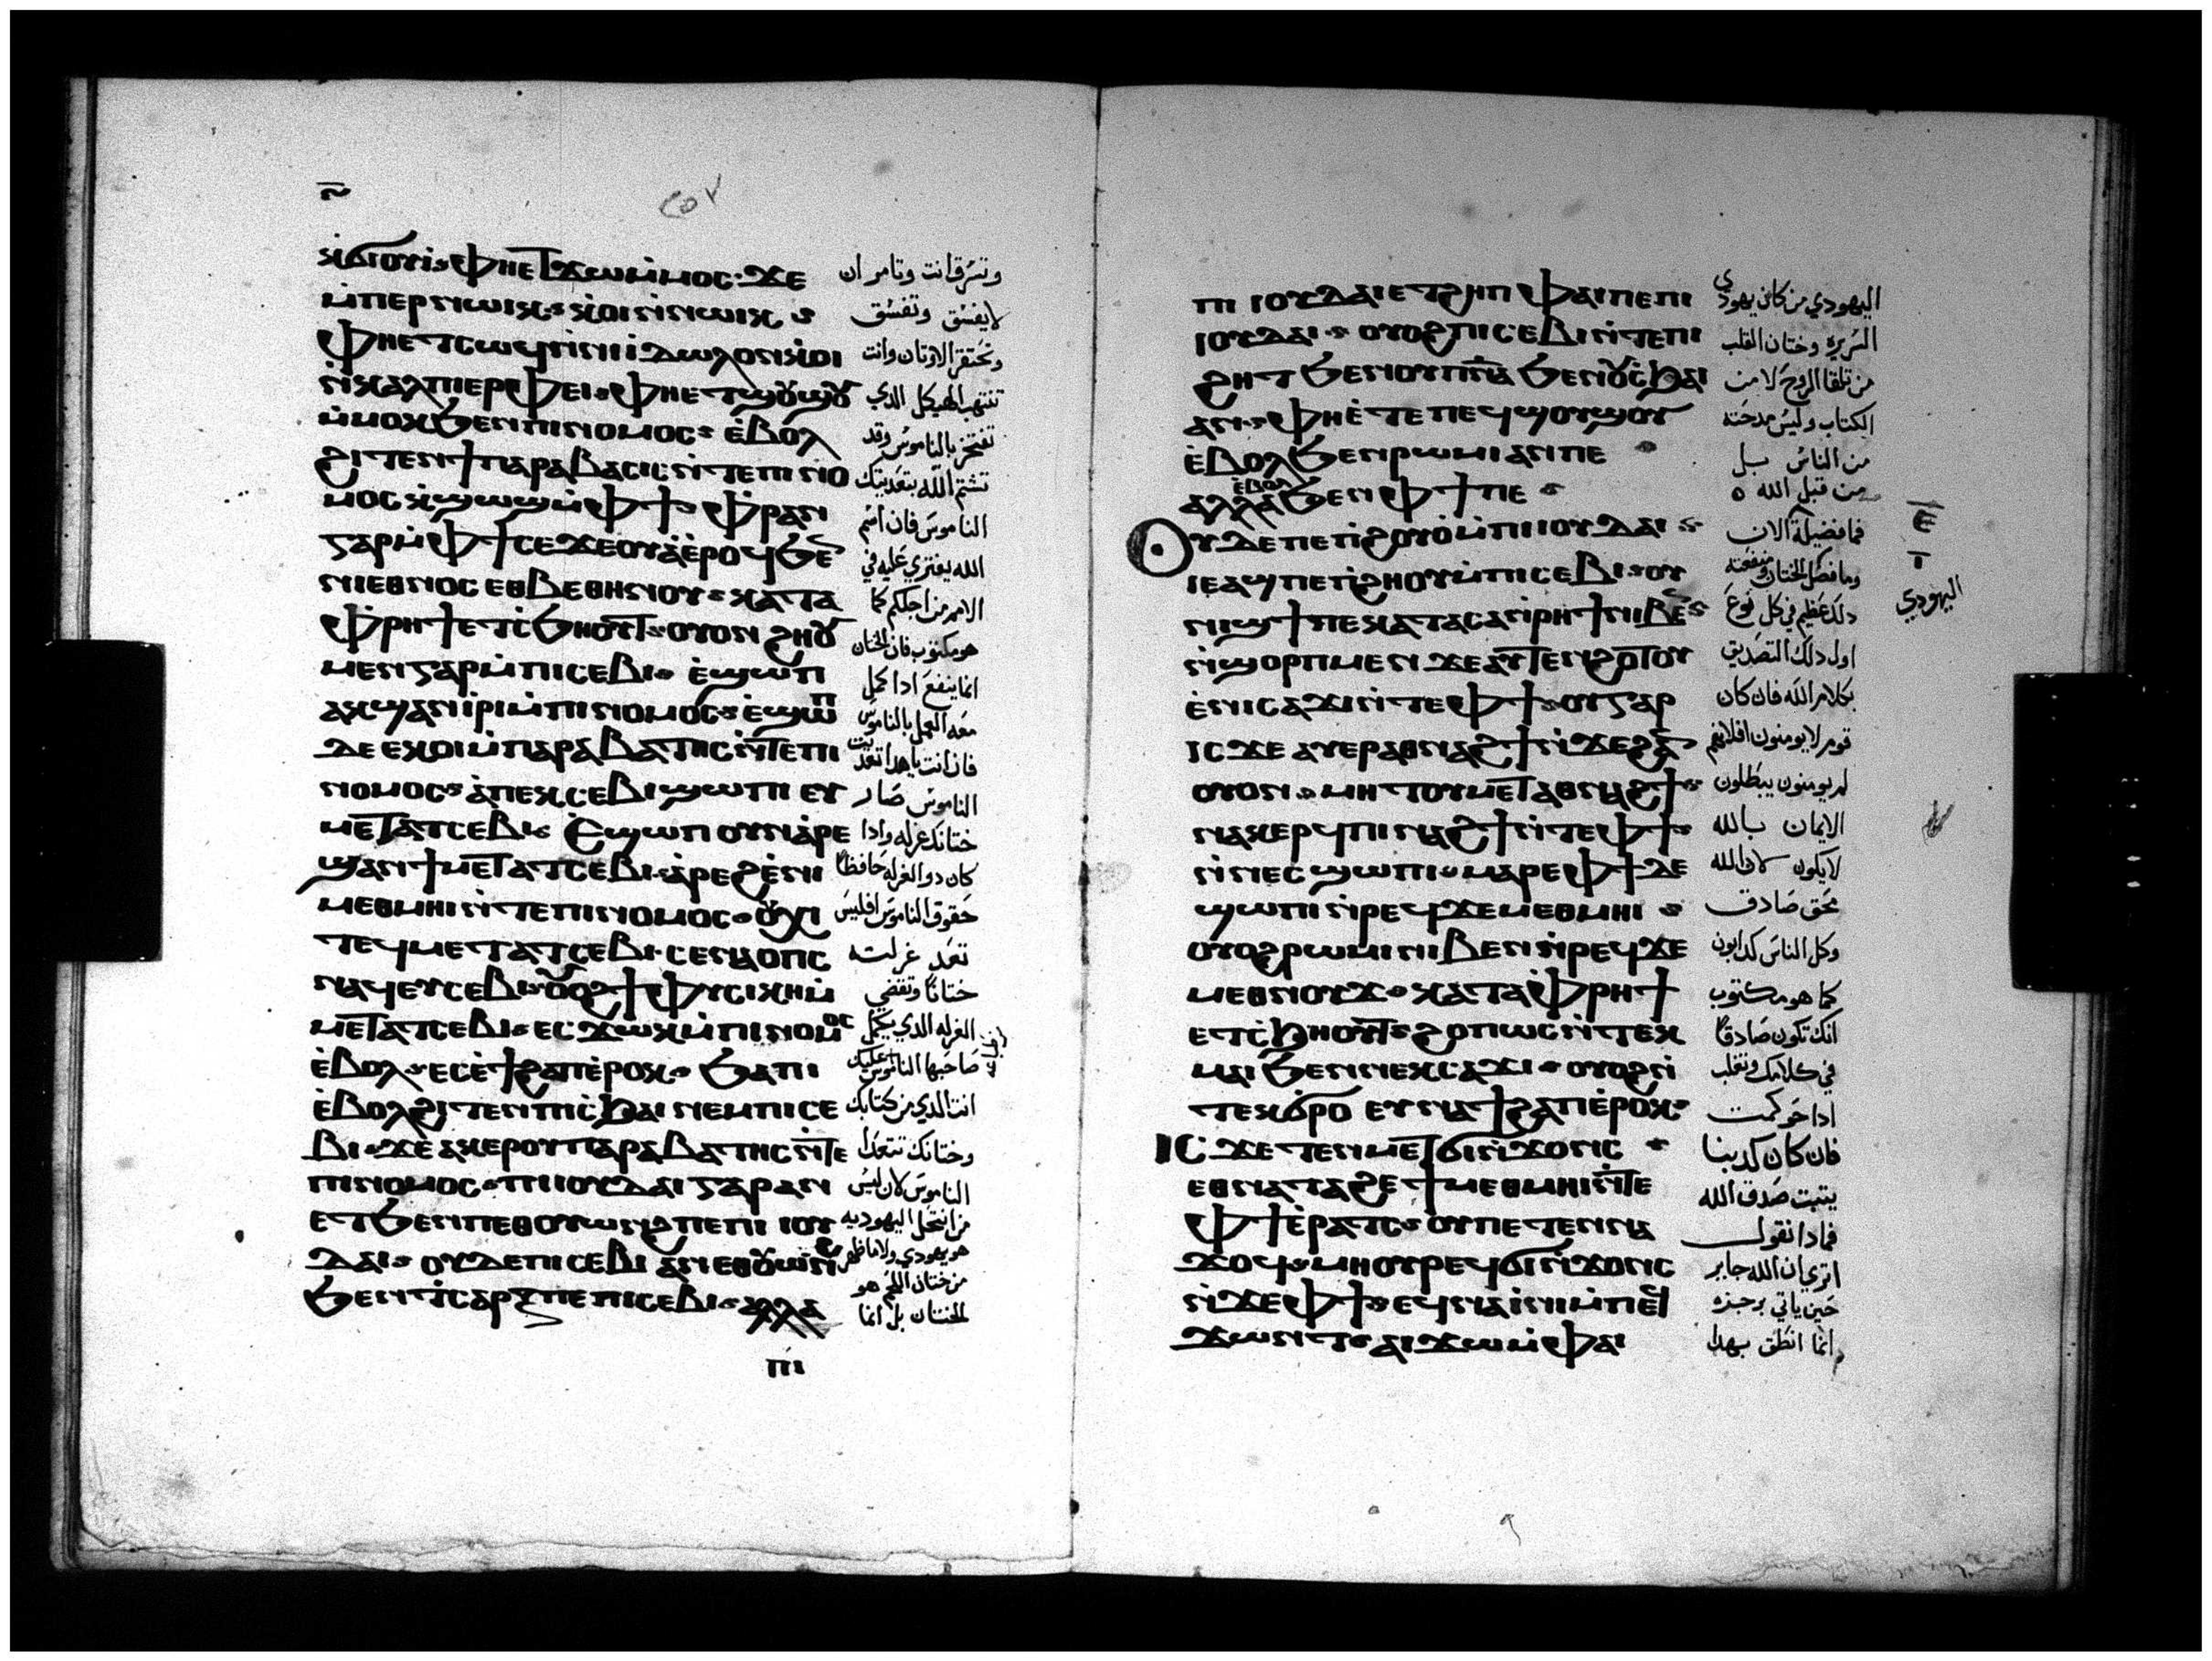 ⲛ̄
ⲕϭⲓⲟⲩⲓ· ⲫⲏⲉⲧϫⲱⲙ̀ⲙⲟⲥ· ϫⲉ
ⲙ̀ⲡⲉⲣⲛⲱⲓⲕ· ⲕⲟⲓⲛ̀ⲛⲱⲓⲕ·
ⲫⲏⲉⲧⲥⲱϥⲛ̀ⲛⲓⲓⲇⲱⲗⲟⲛ ⲕⲟⲓ
ⲛ̀ⲕⲁⲗⲡⲉⲣⲫⲉⲓ· ⲫⲏⲉⲧϣⲟⲩϣⲟⲩ
ⲙ̀ⲙⲟⲕϧⲉⲛⲡⲓⲛⲟⲙⲟⲥ· ⲉ̀ⲃⲟⲗ
ϩⲓⲧⲉⲛϯⲡⲁⲣⲁⲃⲁⲥⲓⲥ ⲛ̀ⲧⲉⲡⲓⲛⲟ
ⲙⲟⲥ ⲕ̀ϣⲱϣⲙ̀ⲫϯ· ⲫ̀ⲣⲁⲛ
ⲅⲁⲣⲙ̀ⲫϯ ⲥⲉϫⲉⲟⲩⲁ̀ⲉ̀ⲣⲟϥϧⲉⲛ
ⲛⲓⲉⲑⲛⲟⲥ ⲉⲑⲃⲉⲑⲏⲛⲟⲩ· ⲕⲁⲧⲁ
ⲫ̀ⲣⲏϯⲉⲧⲥ̀ϧⲏⲟⲩⲧ· ⲟⲩⲟⲛϩⲏⲟⲩ
ⲙⲉⲛⲅⲁⲣⲙ̀ⲡⲓⲥⲉⲃⲓ· ⲉ̀ϣⲱⲡ
ⲁⲕϣⲁⲛⲓ̀ⲣⲓⲙ̀ⲡⲓⲛⲟⲙⲟⲥ· ⲉ̀ϣⲱⲡ
ⲇⲉ ⲉⲕⲟⲓⲙ̀ⲡⲁⲣⲁⲃⲁⲧⲏⲥⲛ̀ⲧⲉⲡⲓ
ⲛⲟⲙⲟⲥ· ⲁ̀ⲡⲉⲕⲥⲉⲃⲓϣⲱⲡⲓ ⲉⲩ
ⲙⲉⲧⲁⲧⲥⲉⲃⲓ· ⲉ̀ϣⲱⲡ ⲟⲩⲛ ⲁ̀ⲣⲉ
ϣⲁⲛϯⲙⲉⲧⲁⲧⲥⲉⲃⲓ ⲁ̀ⲣⲉϩⲉ̀ⲛⲓ
ⲙⲉⲑⲙⲏⲓⲛ̀ⲧⲉⲡⲓⲛⲟⲙⲟⲥ· ⲟⲩⲭⲓ
ⲧⲉϥⲙⲉⲧⲁⲧⲥⲉⲃⲓ· ⲥⲉⲛⲁⲟⲡⲥ
ⲛⲁϥⲉⲩⲥⲉⲃⲓ· ⲟⲩⲟϩϯⲫⲩⲥⲓⲕⲏⲙ̀
ⲙⲉⲧⲁⲧⲥⲉⲃⲓ· ⲉⲥϫⲱⲕⲙ̀ⲡⲓⲛⲟⲙⲟⲥ
ⲉ̀ⲃⲟⲗ· ⲉⲥⲉ̀ϯϩⲁⲡⲉ̀ⲣⲟⲕ· ϧⲁⲡⲓ
ⲉ̀ⲃⲟⲗϩⲓⲧⲉⲛⲡⲓⲥ̀ϧⲁⲓ ⲛⲉⲙⲡⲓⲥⲉ
ⲃⲓ· ϫⲉ ⲁⲕⲉⲣⲟⲩⲡⲁⲣⲁⲃⲁⲧⲏⲥⲛ̀ⲧⲉ
ⲡⲓⲛⲟⲙⲟⲥ· ⲡⲓⲓⲟⲩⲇⲁⲓ ⲅⲁⲣ ⲁⲛ
ⲉⲧϧⲉⲛⲡⲉⲑⲟⲩⲱⲛϩ ⲡⲉ ⲡⲓⲓⲟⲩ
ⲇⲁⲓ· ⲟⲩⲇⲉ ⲡⲓⲥⲉⲃⲓ ⲁⲛ ⲉⲑⲟⲩⲱⲛϩ
ϧⲉⲛⲧⲥⲁⲣⲝ ⲡⲉ ⲡⲓⲥⲉⲃⲓ· ⲁⲗⲗⲁ
ⲡⲓ
وتسرق انت وتامر ان
لا يفسق وتفسق
وتحتقر الاوتان وانت
تنتهب الهيكل الدي
تفتخر بالناموس وقد
تشتم الله بتعديتك
الناموس فان اسم
الله يفتري عليه في
الامم من اجلكم كما
هو مكتوب فان الختان
انما ينفع ادا كمل
معه العمل بالناموس
الناموس صار
ختانك غرله وادا
كان دو الغرله حافظا
حقوق الناموس افليس
تعد غرلته
ختانا وتقضي
الغرله الدي يكمل
انت الدي من كتابك
وختانك تتعدا
الناموس لان ليس
من انتحل اليهوديه
من ختان اللحم هو
الختان بل انما
ⲡⲓ ⲓⲟⲩⲇⲁⲓⲉⲧϩⲏⲡ ⲫⲁⲓⲡⲉⲡⲓ
ⲓⲟⲩⲇⲁⲓ· ⲟⲩⲟϩⲡⲓⲥⲉⲃⲓⲛ̀ⲧⲉⲡⲓ
ϩⲏⲧ ϧⲉⲛⲟⲩⲡⲛⲁ ϧⲉⲛⲟⲩⲥ̀ϧⲁⲓ
ⲁⲛ· ⲫⲏⲉ̀ⲧⲉⲡⲉϥϣⲟⲩϣⲟⲩ
ⲉ̀ⲃⲟⲗϧⲉⲛⲣⲱⲙⲓ ⲁⲛⲡⲉ
ⲁⲗⲗⲁ ⲉⲃⲟⲗ ϧⲉⲛⲫϯⲡⲉ
ⲟⲩⲇⲉⲡⲉⲧⲉⲛ̀ϩⲟⲩⲟ̀ⲙ̀ⲡⲓⲓⲟⲩⲇⲁⲓ·
ⲓⲉⲁϣⲡⲉⲧⲉⲛ̀ϩⲏⲟⲩⲙ̀ⲡⲓⲥⲉⲃⲓ· ⲟⲩ
ⲛⲓϣϯⲡⲉ ⲕⲁⲧⲁⲥⲁⲛ̀ⲣⲏϯⲛⲓⲃⲉⲛ
ⲛ̀ϣⲟⲣⲡⲙⲉⲛ ϫⲉ ⲁⲩⲧⲉⲛϩⲟⲧⲟⲩ
ⲉ̀ⲛⲓⲥⲁϫⲓⲛ̀ⲧⲉⲫϯ· ⲟⲩⲅⲁⲣ
ⲓⲥϫⲉ ⲁⲩⲉⲣⲁⲑⲛⲁϩϯⲛ̀ϫⲉϩⲁⲛ
ⲟⲩⲟⲛ· ⲙⲏ ⲧⲟⲩⲙⲉⲧⲁⲑⲛⲁϩϯ·
ⲛⲁⲕⲉⲣϥⲡⲓⲛⲁϩϯⲛ̀ⲧⲉⲫϯ·
ⲛ̀ⲛⲉⲥϣⲱⲡⲓ· ⲙⲁⲣⲉⲫϯⲇⲉ
ϣⲱⲡⲓⲛ̀ⲣⲉϥϫⲉⲙⲉⲑⲙⲏⲓ
ⲟⲩⲟϩⲣⲱⲙⲓⲛⲓⲃⲉⲛ ⲛ̀ⲣⲉϥϫⲉ
ⲙⲉⲑⲛⲟⲩϫ· ⲕⲁⲧⲁⲫ̀ⲣⲏϯ
ⲉⲧⲥ̀ϧⲏⲟⲩⲧ· ϩⲟⲡⲱⲥⲛ̀ⲧⲉⲕ
ⲙⲁⲓ ϧⲉⲛⲛⲉⲕⲥⲁϫⲓ· ⲟⲩⲟϩⲛ̀
ⲧⲉⲕϭⲣⲟ ⲉⲩⲛⲁϯϩⲁⲡⲉ̀ⲣⲟⲕ·
ⲓⲥϫⲉ ⲧⲉⲛⲙⲉⲧϭⲓⲛ̀ϫⲟⲛⲥ
ⲉⲑⲛⲁⲧⲁϩⲉ ϯⲙⲉⲑⲙⲏⲓⲛ̀ⲧⲉ
ⲫϯⲉ̀ⲣⲁⲧⲥ· ⲟⲩⲡⲉⲧⲉⲛⲛⲁ
ϫⲟϥ· ⲙⲏⲟⲩⲣⲉϥϭⲓⲛ̀ϫⲟⲛⲥ
ⲛ̀ϫⲉⲫϯ· ⲉϥⲛⲁⲓ̀ⲛⲓⲙ̀ⲡⲉϥ
ϫⲱⲛⲧ· ⲁⲓϫⲱⲙ̀ⲫⲁⲓ
اليهودي من كان يهودي
السريره وختان القلب
من تلقا الروح لا من
الكتاب وليس مدحته
من الناس بل
من قبل الله
فما فضيلة الان
اليهودي
دلك عظيم في كل نوع
اول دلك التصديق
بكلام الله فان كان
لم يومنون يبطلون
الايمان بالله
لا يكون لان الله
محق صادق
وكل الناس كدابون
كما هو مكتوب
انك تكون صادقا
في كلامك وتغلب
ادا حوكمت
فان كان كدبنا
يتبت صدق الله
فمادا نقول
اترى ان الله جاير
حين ياتي برجزه
انما انطق بهدا